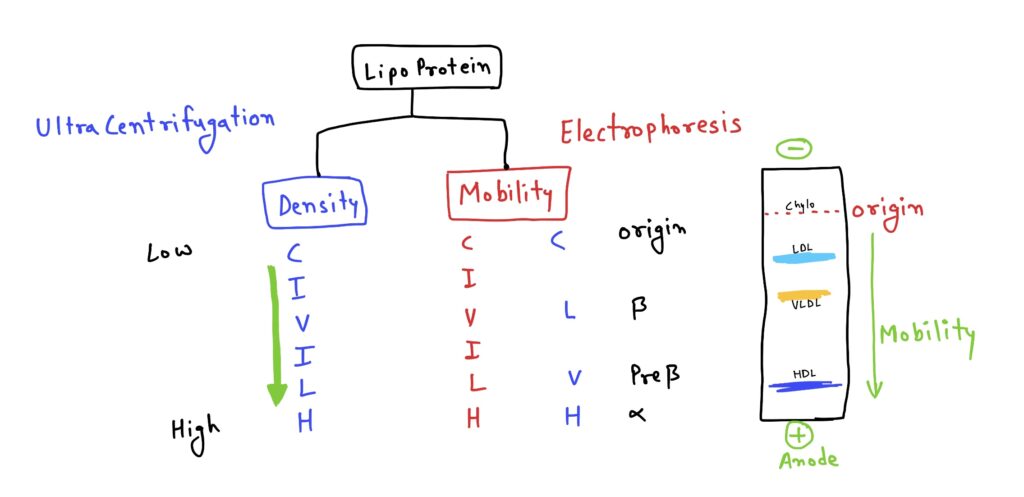 Lipo Protein
Ultra Centrifugation
Electrophoresis
Density
Mobility
Low
C
I
V
I
L
H
High
C
I
V
I
L
H
C
L
V
H
origin
β
Pre β
α
−
Chylo
origin
LDL
VLDL
HDL
Mobility
+
Anode